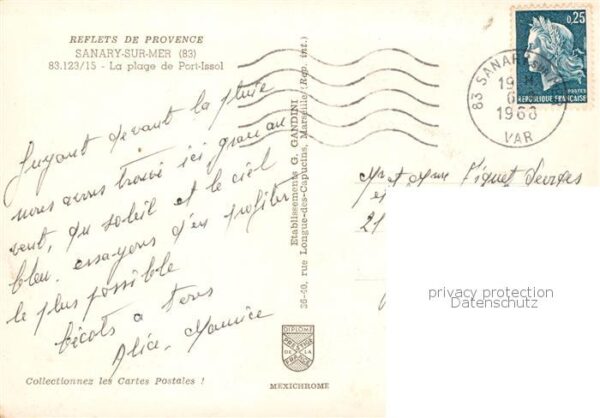 REFLETS DE PROVENCE
SANARY-SUR-MER (83)
83.123/15 - La plage de Port-Issol
Fuyant devant la pluie
nous avons trouvé ici grand
vent, du soleil et le ciel
bleu. essayons d'en profiter
le plus possible
bécots à tous
Alice. Maurice
Collectionnez les Cartes Postales !
Etablissements G. GANDINI
36-40, rue Longue-des-Capucins, Marseille (Rep. int.)
DIPLOME
PRESTIGE
DE LA
FRANCE
MEXICHROME
0,25
POSTES
REPUBLIQUE FRANÇAISE
83 SANARY
19 H
6
1968
VAR
Mr et Mme
21
privacy protection
Datenschutz